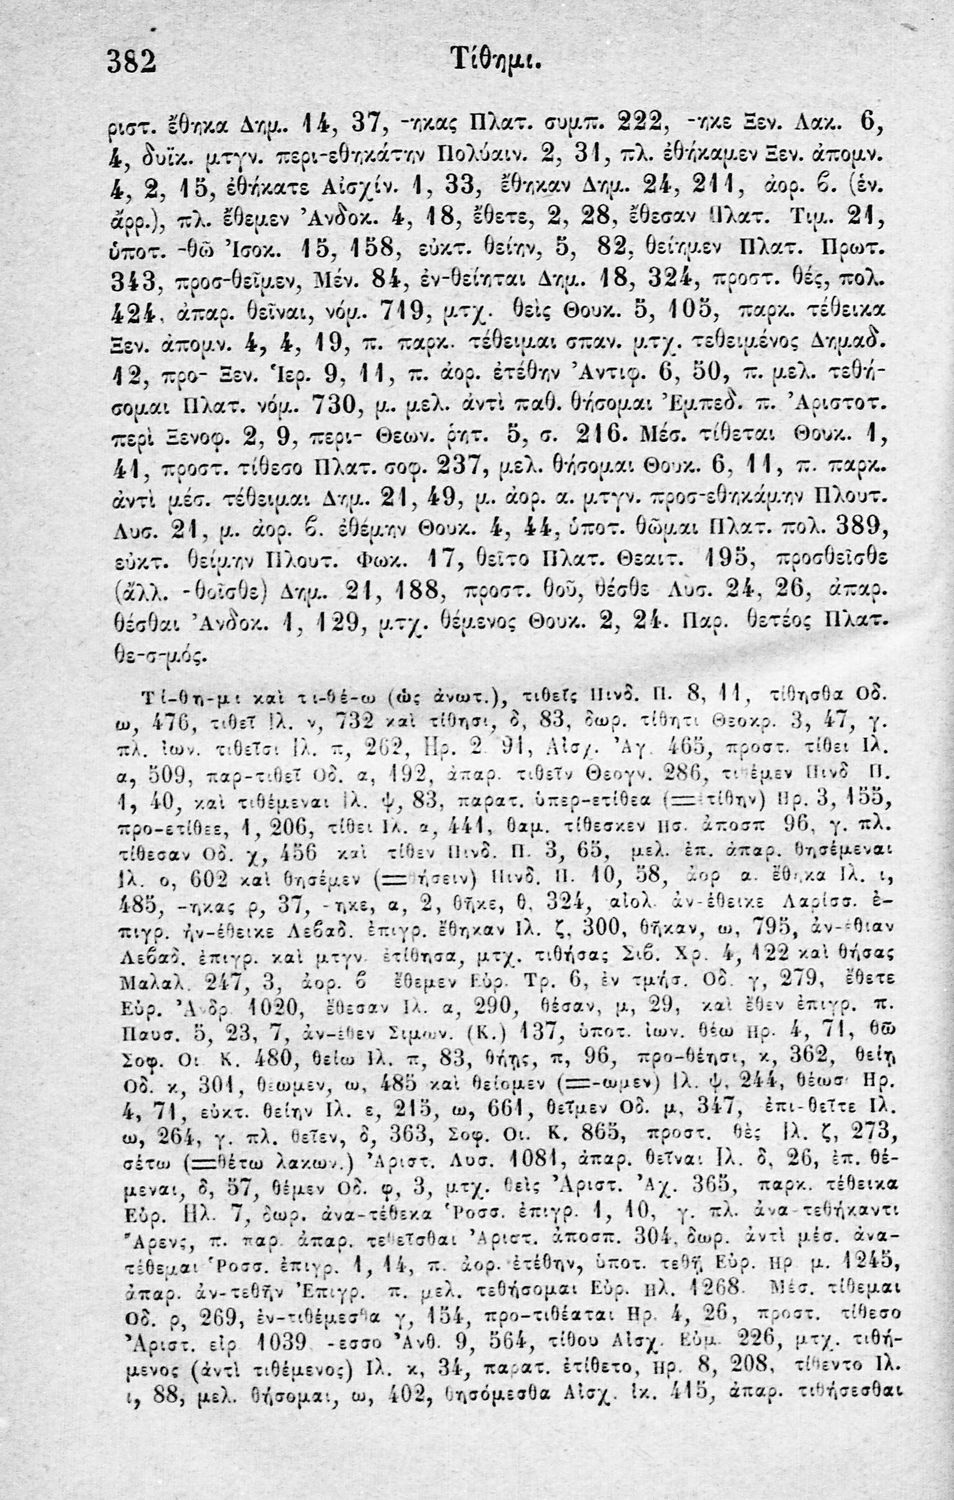 382
Τίθημι.
ριστ. ἔθηκα Δημ. 14, 37, -ηκας Πλατ. συμπ. 222, -ηκε Ξεν. Λακ. 6,
4, δυϊκ. μτγν. περι-εθηκάτην Πολύαιν. 2, 31, πλ. ἐθήκαμεν Ξεν. ἀπομν.
4, 2, 15, ἐθήκατε Αἰσχίν. 1, 33, ἔθηκαν Δημ. 24, 211, ἀορ. ϐ. (ἐν.
ἄρρ.), πλ. ἔθεμεν Ἀνδοκ. 4, 18, ἔθετε, 2, 28, ἔθεσαν Πλατ. Τιμ. 21,
ὑποτ. -θῶ Ἰσοκ. 15, 158, εὐκτ. θείην, 5, 82, θείημεν Πλατ. Πρωτ.
343, προσ-θεῖμεν, Μέν. 84, ἐν-θείηται Δημ. 18, 324, προστ. θές, πολ.
424, ἀπαρ. θεῖναι, νόμ. 719, μτχ. θεὶς Θουκ. 5, 105, παρκ. τέθεικα
Ξεν. ἀπομν. 4, 4, 19, π. παρκ. τέθειμαι σπαν. μτχ. τεθειμένος Δημαδ.
12, προ- Ξεν. Ἱερ. 9, 11, π. ἀορ. ἐτέθην Ἀντιφ. 6, 50, π. μελ. τεθή-
σομαι Πλατ. νόμ. 730, μ. μελ. ἀντὶ παθ. θήσομαι Ἐμπεδ. π. Ἀριστοτ.
περὶ Ξενοφ. 2, 9, περι- Θεων. ῥητ. 5, σ. 216. Μέσ. τίθεται Θουκ. 1,
41, προστ. τίθεσο Πλατ. σοφ. 237, μελ. θήσομαι Θουκ. 6, 11, π. παρκ.
ἀντὶ μέσ. τέθειμαι Δημ. 21, 49, μ. ἀορ. α. μτγν. προσ-εθηκάμην Πλουτ.
Λυσ. 21, μ. ἀορ. ϐ. ἐθέμην Θουκ. 4, 44, ὑποτ. θῶμαι Πλατ. πολ. 389,
εὐκτ. θείμην Πλουτ. Φωκ. 17, θεῖτο Πλατ. Θεαιτ. 195, προσθεῖσθε
(ἄλλ. -θοῖσθε) Δημ. 21, 188, προστ. θοῦ, θέσθε Λυσ. 24, 26, ἀπαρ.
θέσθαι Ἀνδοκ. 1, 129, μτχ. θέμενος Θουκ. 2, 24. Παρ. θετέος Πλατ.
θε-σ-μός.
Τί-θη-μι καὶ τι-θέ-ω (ὡς ἀνωτ.), τιθεῖς Πινδ. Π. 8, 11, τίθησθα Οδ.
ω, 476, τιθεῖ Ιλ. ν, 732 καὶ τίθησι, δ, 83, δωρ. τίθητι Θεοκρ. 3, 47, γ.
πλ. ἰων. τιθεῖσι Ιλ. π, 262, Ηρ. 2 91, Αἰσχ. Ἀγ. 465, προστ. τίθει Ιλ.
α, 509, παρ-τιθεῖ Οδ. α, 192, ἀπαρ. τιθεῖν Θεογν. 286, τιθέμεν Πινδ Π.
1, 40, καὶ τιθέμεναι Ιλ. ψ, 83, παρατ. ὑπερ-ετίθεα (=ἐτίθην) Ηρ. 3, 155,
προ-ετίθεε, 1, 206, τίθει Ιλ. α, 441, θαμ. τίθεσκεν Ησ. ἀποσπ 96, γ. πλ.
τίθεσαν Οδ. χ, 456 καὶ τίθεν Πινδ. Π. 3, 65, μελ. ἐπ. ἀπαρ. θησέμεναι
Ιλ. ο, 602 καὶ θησέμεν (=θήσειν) Πινδ. Π. 10, 58, ἀορ α. ἔθηκα Ιλ. ι,
485, -ηκας ρ, 37, -ηκε, α, 2, θῆκε, θ, 324, αἰολ. ἀν-έθεικε Λαρίσσ. ἐ-
πιγρ. ἠν-έθεικε Λεϐαδ. ἐπιγρ. ἔθηκαν Ιλ. ζ, 300, θῆκαν, ω, 795, ἀν-έθιαν
Λεϐαδ. ἐπιγρ. καὶ μτγν. ἐτίθησα, μτχ. τιθήσας Σιϐ. Χρ. 4, 122 καὶ θήσας
Μαλαλ. 247, 3, ἀορ. ϐ ἔθεμεν Εὐρ. Τρ. 6, ἐν τμήσ. Οδ. γ, 279, ἔθετε
Εὐρ. Ἀνδρ 1020, ἔθεσαν Ιλ. α, 290, θέσαν, μ, 29, καὶ ἔθεν ἐπιγρ. π.
Παυσ. 5, 23, 7, ἀν-έθεν Σιμων. (Κ.) 137, ὑποτ. ἰων. θέω Ηρ. 4, 71, θῶ
Σοφ. Οι Κ. 480, θείω Ιλ. π, 83, θήῃς, π, 96, προ-θέησι, κ, 362, θείῃ
Οδ. κ, 301, θέωμεν, ω, 485 καὶ θείομεν (=-ωμεν) Ιλ. ψ, 244, θέωσι Ηρ.
4, 71, εὐκτ. θείην Ιλ. ε, 215, ω, 661, θεῖμεν Οδ. μ, 347, ἐπι-θεῖτε Ιλ.
ω, 264, γ. πλ. θεῖεν, δ, 363, Σοφ. Οι. Κ. 865, προστ. θὲς Ιλ. ζ, 273,
σέτω (=θέτω λακων.) Ἀριστ. Λυσ. 1081, ἀπαρ. θεῖναι Ιλ. δ, 26, ἐπ. θέ-
μεναι, δ, 57, θέμεν Οδ. φ, 3, μτχ. θεὶς Ἀριστ. Ἀχ. 365, παρκ. τέθεικα
Εὐρ. Ηλ. 7, δωρ. ἀνα-τέθεκα Ῥοσσ. ἐπιγρ. 1, 10, γ. πλ. ἀνα-τεθήκαντι
Ἄρενς, π. παρ ἀπαρ. τεθεῖσθαι Ἀριστ. ἀποσπ. 304, δωρ. ἀντὶ μέσ. ἀνα-
τέθεμαι Ῥοσσ. ἐπιγρ. 1, 14, π. ἀορ. ἐτέθην, ὑποτ. τεθῇ Εὐρ. Ηρ μ. 1245,
ἀπαρ. ἀν-τεθῆν Ἐπιγρ. π. μελ. τεθήσομαι Εὐρ. Ηλ. 1268. Μέσ. τίθεμαι
Οδ. ρ, 269, ἐν-τιθέμεσθα γ, 154, προ-τιθέαται Ηρ. 4, 26, προστ. τίθεσο
Ἀριστ. εἰρ 1039 -εσσο Ἀνθ. 9, 564, τίθου Αἰσχ. Εὐμ. 226, μτχ. τιθή-
μενος (ἀντὶ τιθέμενος) Ιλ. κ, 34, παρατ. ἐτίθετο, Ηρ. 8, 208, τίθεντο Ιλ.
ι, 88, μελ. θήσομαι, ω, 402, θησόμεσθα Αἰσχ. ἱκ. 415, ἀπαρ. τιθήσεσθαι